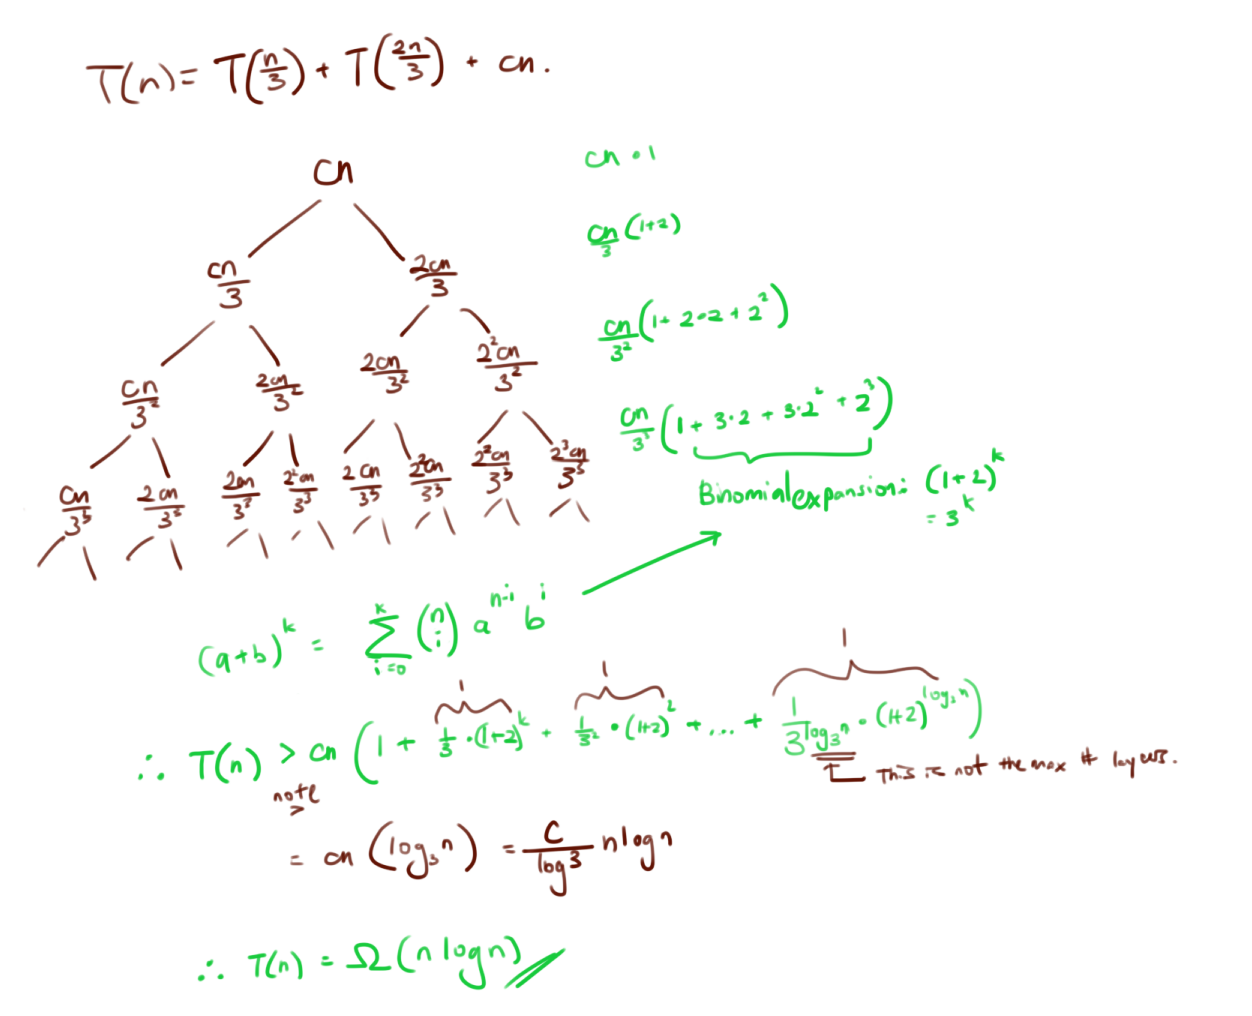 T(n) = T(n/3) + T(2n/3) + cn.
cn
cn · 1
cn/3 2cn/3
cn/3 (1+2)
cn/3² 2cn/3² 2cn/3² 2²cn/3²
cn/3² (1 + 2·2 + 2²)
cn/3³ 2cn/3³ 2cn/3³ 2²cn/3³ 2cn/3³ 2²cn/3³ 2²cn/3³ 2³cn/3³
cn/3³ (1 + 3·2 + 3·2² + 2³)
Binomial expansion: (1+2)^k
= 3^k
(a+b)^k = Σ_{i=0}^{k} (n i) a^{n-i} b^i
1 1 1
∴ T(n) > cn (1 + 1/3 · (1+2)^k + 1/3² · (1+2)² + ... + 1/3^{log₃n} · (1+2)^{log₃n})
note
>
This is not the max # layers.
= cn (log₃n) = c/log3 n log n
∴ T(n) = Ω(n log n)